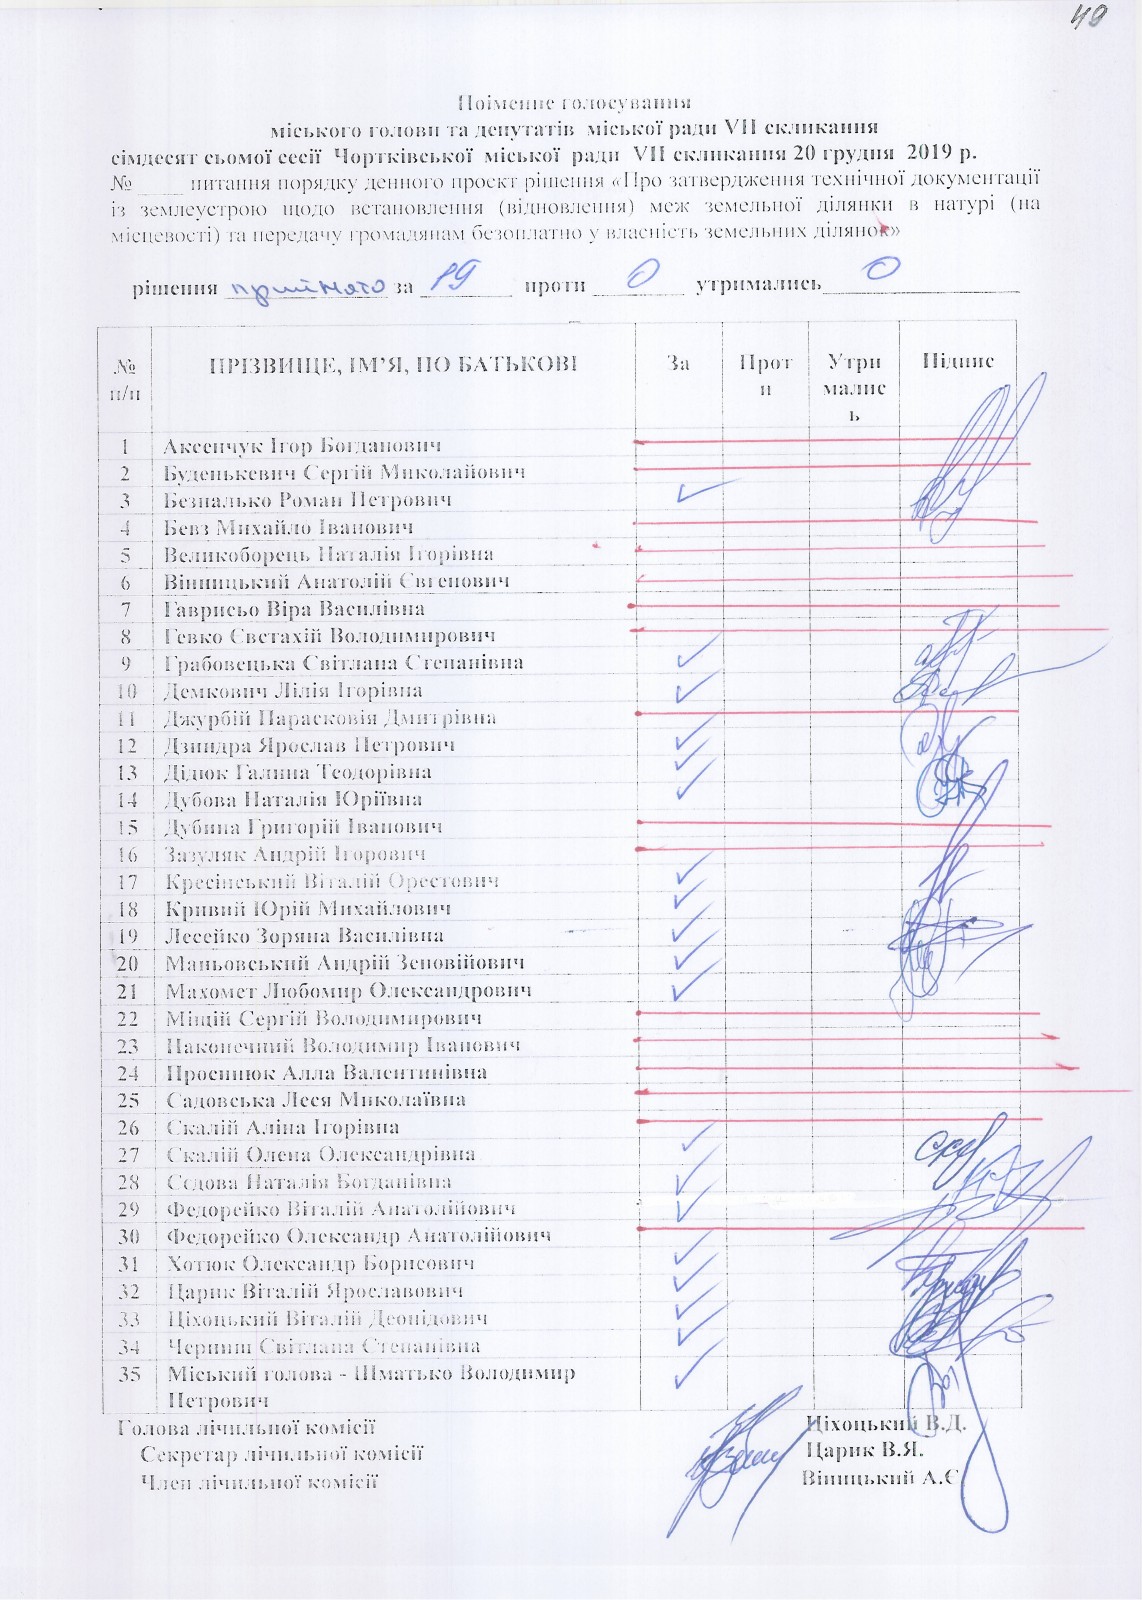 49
Поіменне голосування
міського голови та депутатів міської ради VII скликання
сімдесят сьомої сесії Чортківської міської ради VII скликання 20 грудня 2019 р.
№ ____ питання порядку денного проєкт рішення «Про затвердження технічної документації
із землеустрою щодо встановлення (відновлення) меж земельної ділянки в натурі (на
місцевості) та передачу громадянам безоплатно у власність земельних ділянок»
рішення прийнято за 19 проти 0 утримались 0
№ п/п ПРІЗВИЩЕ, ІМ’Я, ПО БАТЬКОВІ За Проти УтрималисЬ Підпис
1 Аксенчук Ігор Богданович
2 Буденькевич Сергій Миколайович
3 Безпалько Роман Петрович
4 Бевз Михайло Іванович
5 Великоборець Наталія Ігорівна
6 Вінницький Анатолій Євгенович
7 Гаврисьо Віра Василівна
8 Гевко Євстахій Володимирович
9 Грабовецька Світлана Степанівна
10 Демкович Лілія Ігорівна
11 Джурбій Парасковія Дмитрівна
12 Дзиндра Ярослав Петрович
13 Дідюк Галина Теодорівна
14 Дубова Наталія Юріївна
15 Дубина Григорій Іванович
16 Зазуляк Андрій Ігорович
17 Кресінський Віталій Орестович
18 Кривий Юрій Михайлович
19 Лесейко Зоряна Василівна
20 Маньовський Андрій Зеновійович
21 Махомет Любомир Олександрович
22 Міщій Сергій Володимирович
23 Наконечний Володимир Іванович
24 Просинюк Алла Валентинівна
25 Садовська Леся Миколаївна
26 Скалій Аліна Ігорівна
27 Скалій Олена Олександрівна
28 Сєдова Наталія Богданівна
29 Федорейко Віталій Анатолійович
30 Федорейко Олександр Анатолійович
31 Хотюк Олександр Борисович
32 Царик Віталій Ярославович
33 Ціхоцький Віталій Деонідович
34 Черниш Світлана Степанівна
35 Міський голова - Шматько Володимир
Петрович
Голова лічильної комісії Ціхоцький В.Д.
Секретар лічильної комісії Царик В.Я.
Член лічильної комісії Вінницький А.Є